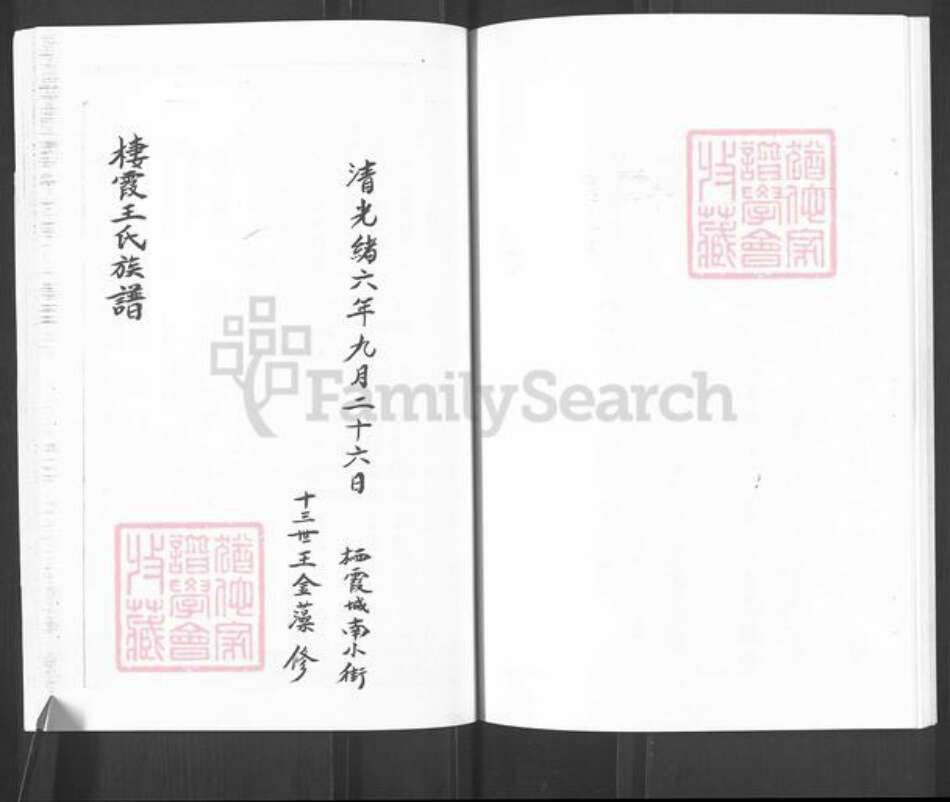 猶他家
譜學會
收藏
清光緒六年九月二十六日
栖霞城南小街
十三世王金藻修
棲霞王氏族譜
猶他家
譜學會
收藏
FamilySearch